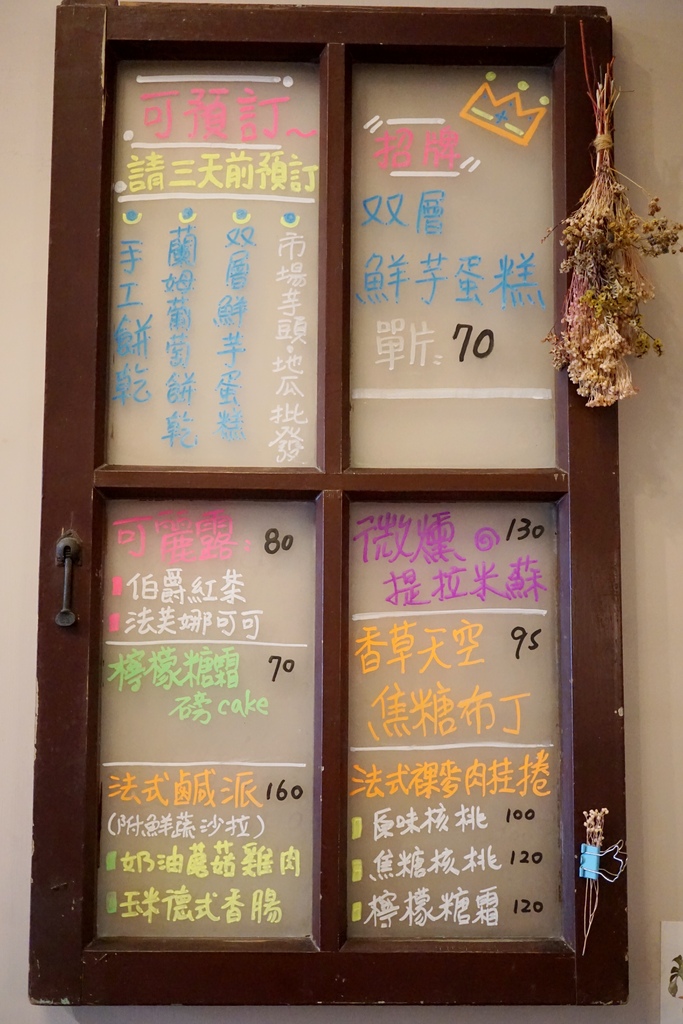 可預訂～
請三天前預訂
市場芋頭·地瓜批發
双層鮮芋蛋糕
蘭姆葡萄餅乾
手工餅乾
招牌
双層
鮮芋蛋糕
單片: 70
可麗露: 80
伯爵紅茶
法芙娜可可
檸檬糖霜 70
磅cake
法式鹹派 160
(附鮮蔬沙拉)
奶油蘑菇雞肉
玉米德式香腸
微燻 130
提拉米蘇
香草天空 95
焦糖布丁
法式裸麥肉桂捲
原味核桃 100
焦糖核桃 120
檸檬糖霜 120